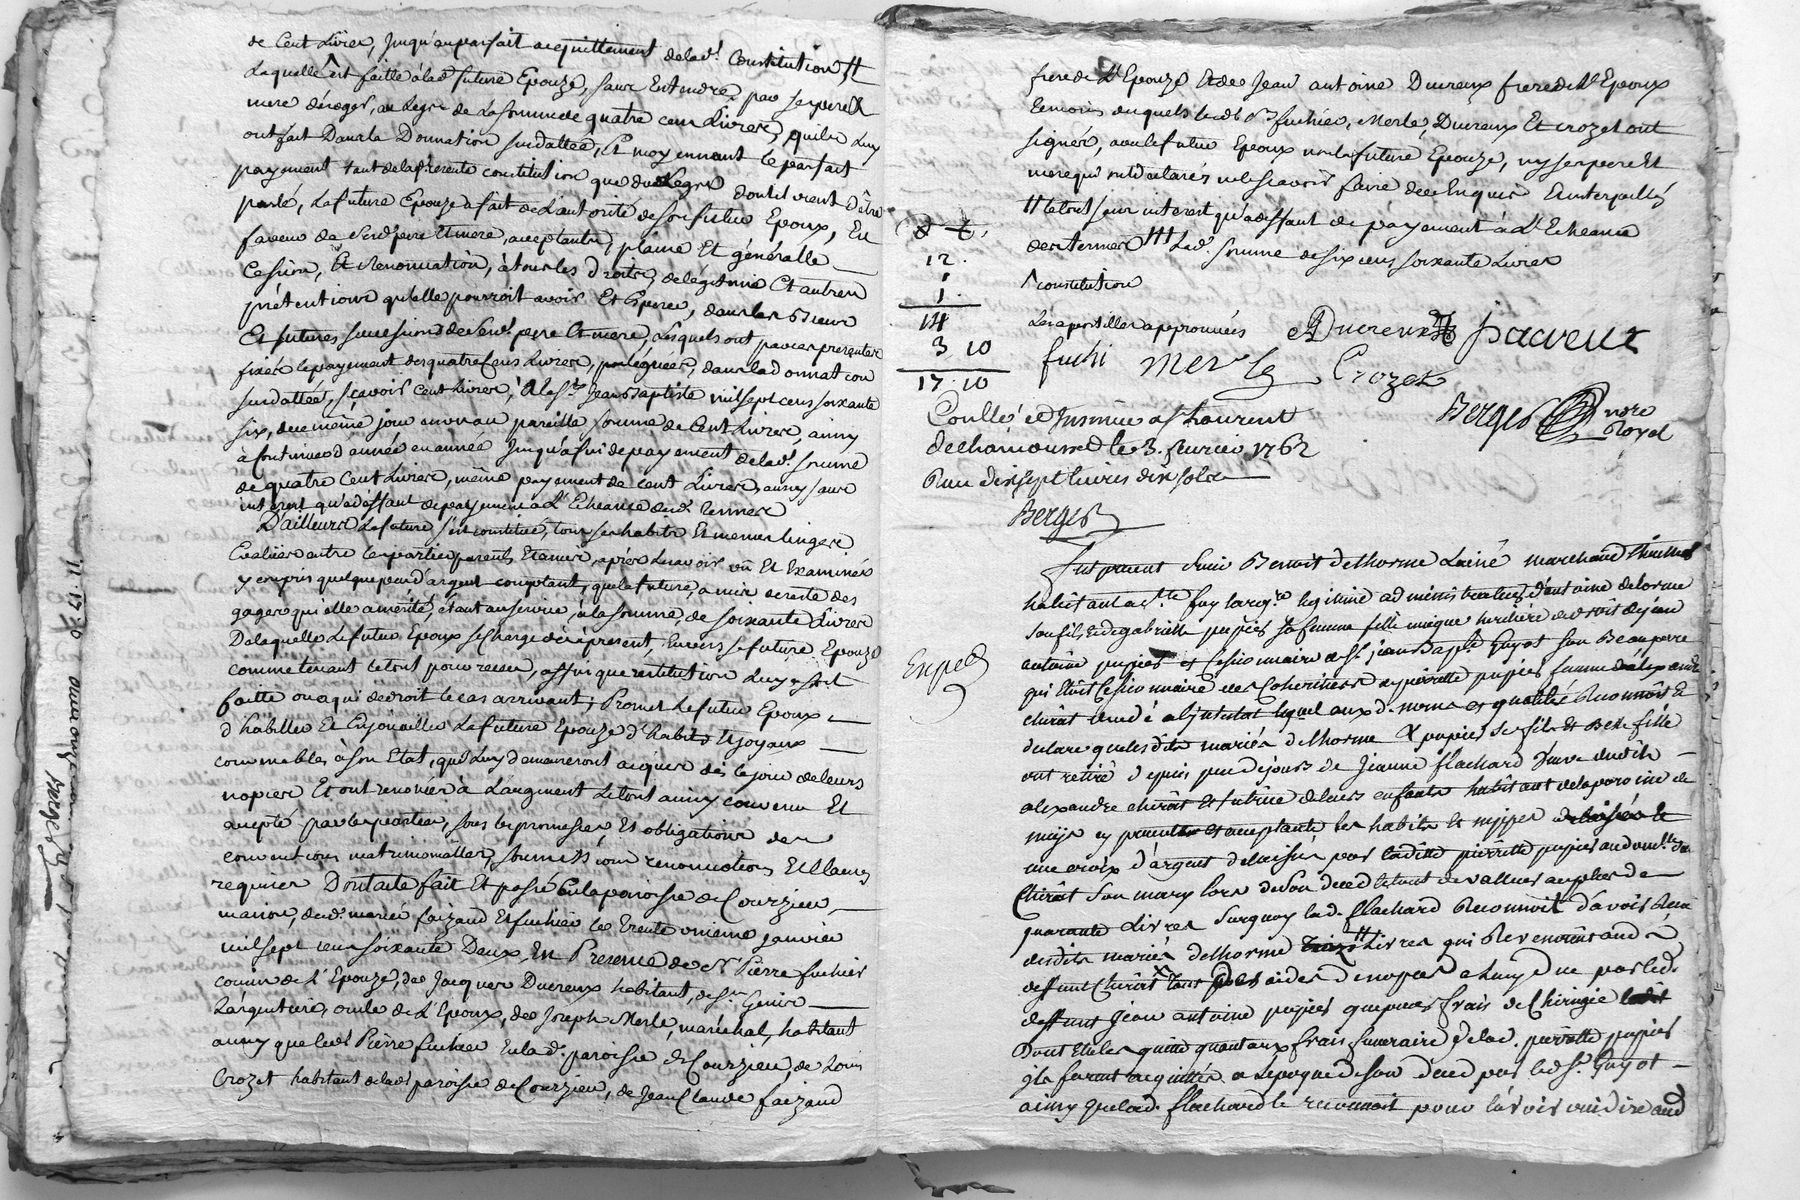 de Cent Livres, Jusqu'au parfait acquittement de lad. Constitution,
Laquelle est faitte à lad. future Epouze, sans Entendre par ses pere &
mere déroger, au Legs de La somme de quatre cens Livres, qu'ils Luy
ont fait Dans la Donnation susdattée, Et moyennant le parfait
payement tant de la présente constitution que du Legs dont il vient d'être
parlé, La future Epouze a fait de L'autorité de son futur Epoux, En
faveur de Sesd. pere Et mere, acceptants, plaine Et généralle
Cession, Et Renonciation, à tous les droits, de légitime Et autres
prétentions qu'elle pourroit avoir Et Espérer, dans les Biens
Et futures successions de Sesd. pere Et mere, Lesquels ont par ces presentes
fixés le payement des quatre Cens Livres, par léguées, dans la donnation
susdattée, sçavoir cent Livres, à la St. Jean Baptiste mil sept cens soixante
six, de ce même jour en un an pareille somme de Cent Livres, ainsy
à Continuer d'année en année Jusqu'à fin de payement de lad. somme
de quatre Cent Livres, même payement de cent Livres, aussy sans
interest qu'à deffaut de payement à L'Echeance desd. termes
D'ailleurs La future s'est constituée, tous ses habits Et menus linges
Evalués entre les parties, parents, Et amis, après Les avoir vû Et Examinés
y compris quelque peu d'argent comptant, que la future, a mis de reste des
gages qu'elle a mérité, étant au service, à la somme, de soixante Livres
De laquelle Le futur Epoux se charge dès à présent, Envers sa future Epouze
comme tenant le tout pour receu, affin que restitution Luy en soit
faitte ou à qui de droit le cas arrivant, Promet Le futur Epoux
d'habiller Et Enjouailler La future Epouze d'habits Et joyaux
convenables à Son Etat, qui Luy demeureront acquis dès le jour de leurs
nopces Et ont renoncé à L'augment Le tout ainsy convenu Et
accepté par les parties, sous les promesses Et obligations des
conventions matrimonialles, soumissions renonciations Et Clauses
requises Dont acte fait Et passé En la paroisse de Courzieu,
maison, desd. mariés faizand Et fuchiés le Trente unieme janvier
mil sept cens soixante Deux, En Presence de Sr. Pierre fuchiés
cousin de L'Epouze, de Jacques Ducreux habitant, de St. Genis
L'argentiere, oncle de L'Epoux, de Joseph Merle, maréchal, habitant
ainsy que led. Pierre fuchiés En lad. paroisse de Courzieu, de Louis
Crozet habitant de lad. paroisse de Courzieu, de Jean Claude faizand
frere de L'Epouze Et de Jean antoine Ducreux frere dud. Epoux
temoins desquels lesd. Srs. fuchiés, Merle, Ducreux Et Crozet ont
signés, avec le futur Epoux non la future Epouze, ny ses pere Et
mere qui ont déclarés ne le sçavoir faire de ce Enquis Et interpellés
# le tout sans interest qu'à deffaut de payement à L'Echeance
des termes ### Lad. somme de six cens soixante Livres
^ constitution
12.
1
1.
14
3 10
17. 10
Les apostilles approuvées Ducreux Jducreux
fuchi Merle Crozet
Berger nore
Royal
Conllé et Insinué a St Laurent
de chamousset le 3. fevrier 1762
Receu dix sept livres dix sols
Berger
Exped
fut present Sieur Benoit delhorme L'ainé marchand
son fils Et de gabrielle pupier sa femme fille unique heritiere de droit de jean
antoine pupier et Cessionnaire de Sr. jean Bapte. Guyot son Beaupere
qui Etoit Cessionnaire des Coheritiers de pierrette pupier femme d'alexandre
declare que lesdits mariés delhorme & pupier ses fils Et Belle fille
ont retiré depuis peu de jours de Jeanne flachard veuve dudit
alexandre chirât Et tutrice de leurs enfants habitant de la paroisse de
meys cy presente et acceptante les habits Et nippes delaissés Et
une croix d'argent delaissée par laditte pierrette pupier
Chirât son mary lors de son deced le tout de valleur au plus de
quarante Livres Surquoy lad. flachard Reconnoit d'avoir Receu
desdits mariés delhorme treize Livres qui Revenoient aud.
deffunt Chirât
deffunt jean antoine pupier quelques frais de Chirurgie
frais funeraires de lad. pierrette pupier
ils furent acquittés a l'epoque de son deced par led. Sr. Guyot
ainsy que lad. flachard le reconnoit pour l'avoir ouï dire aud